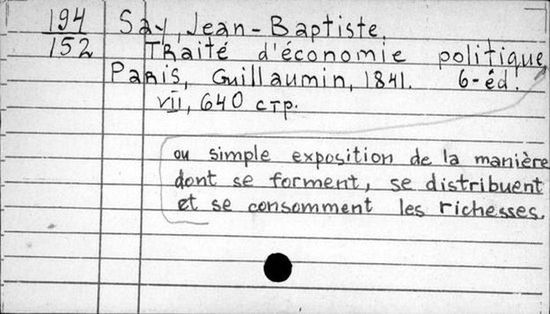 194 Say, Jean-Baptiste.
152 Traité d'économie politique
Paris, Guillaumin, 1841. 6-éd.
VII, 640 стр.
ou simple exposition de la manière
dont se forment, se distribuent
et se consomment les richesses.